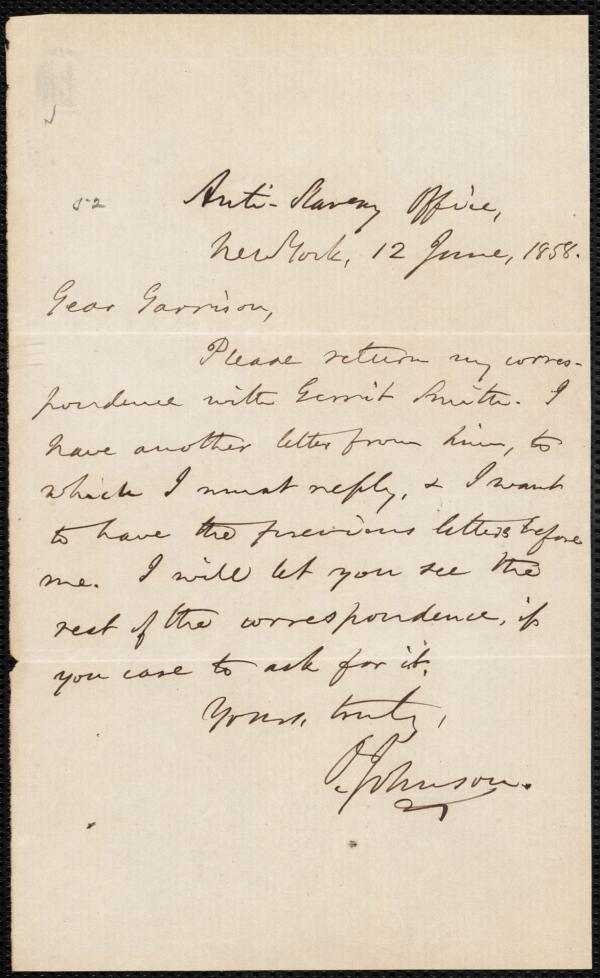 52
Anti-Slavery Office,
New York, 12 June, 1858.
Dear Garrison,
Please return my corres-
pondence with Gerrit Smith. I
have another letter from him, to
which I must reply, & I want
to have the previous letters before
me. I will let you see the
rest of the correspondence, if
you care to ask for it.
Yours, truly,
O. Johnson.